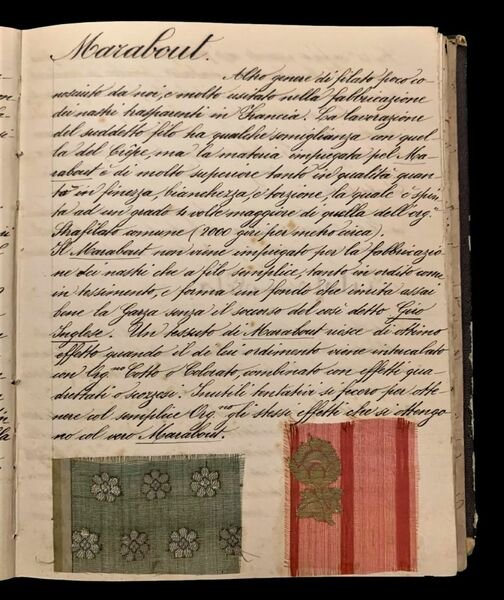 Marabout.
Altro genere di filato poco co-
nosciuto da noi, e molto usitato nella fabbricazione
dei nastri trasparenti in Francia. La lavorazione
del suddetto filo ha qualche somiglianza con quel-
la del Crêpe, ma la materia impiegata pel Ma-
rabout è di molto superiore tanto in qualità quan-
to in finezza, bianchezza, e torzione, la quale è spin-
ta ad un grado volte maggiore di quella dell'Org.no
Strafilato comune (2000 giri per metro circa).
Il Marabout non viene impiegato per la fabbricazio-
ne dei nastri che a filo semplice, tanto in ordito come
in tessimento, e forma un fondo che imita assai
bene la Garza senza il soccorso del così detto Giro
Inglese. Un tessuto di Marabout riesce di ottimo
effetto quando il di lui ordimento viene intercalato
con Org.no Cotto o Colorato, combinato con effetti qua-
drettati o scozzesi. Inutili tentativi si fecero per otte-
nere col semplice Org.no gli stessi effetti che si ottengo-
no col vero Marabout.